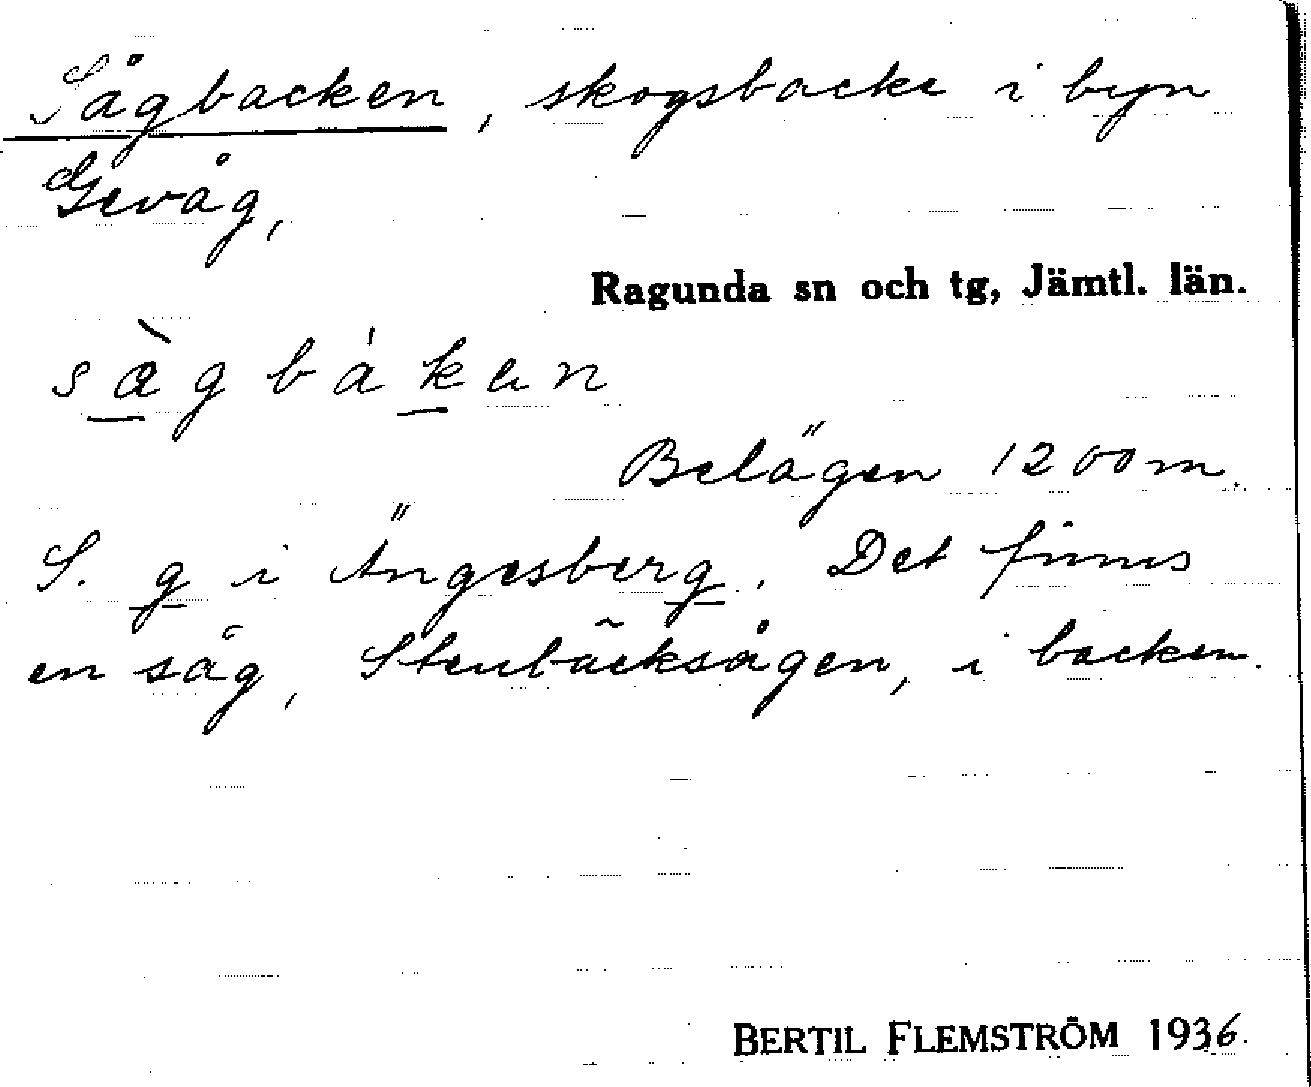 Sågbacken, skogsbacke i byn
Gevåg,
Ragunda sn och tg, Jämtl. län.
sàgbákan
Belägen 1200 m.
S. g i Ängesberg. Det finns
en såg, Stenbäcksågen, i backen.
BERTIL FLEMSTRÖM 1936.